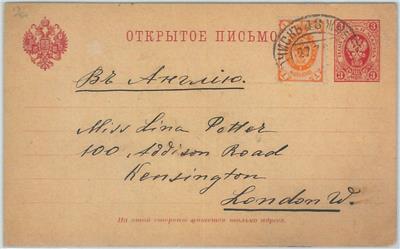 ОТКРЫТОЕ ПИСЬМО.
3 3
Въ Англію.
Miss Lina Potter
100, Addison Road
Kensington
London W.
На этой сторонѣ пишется только адресъ.